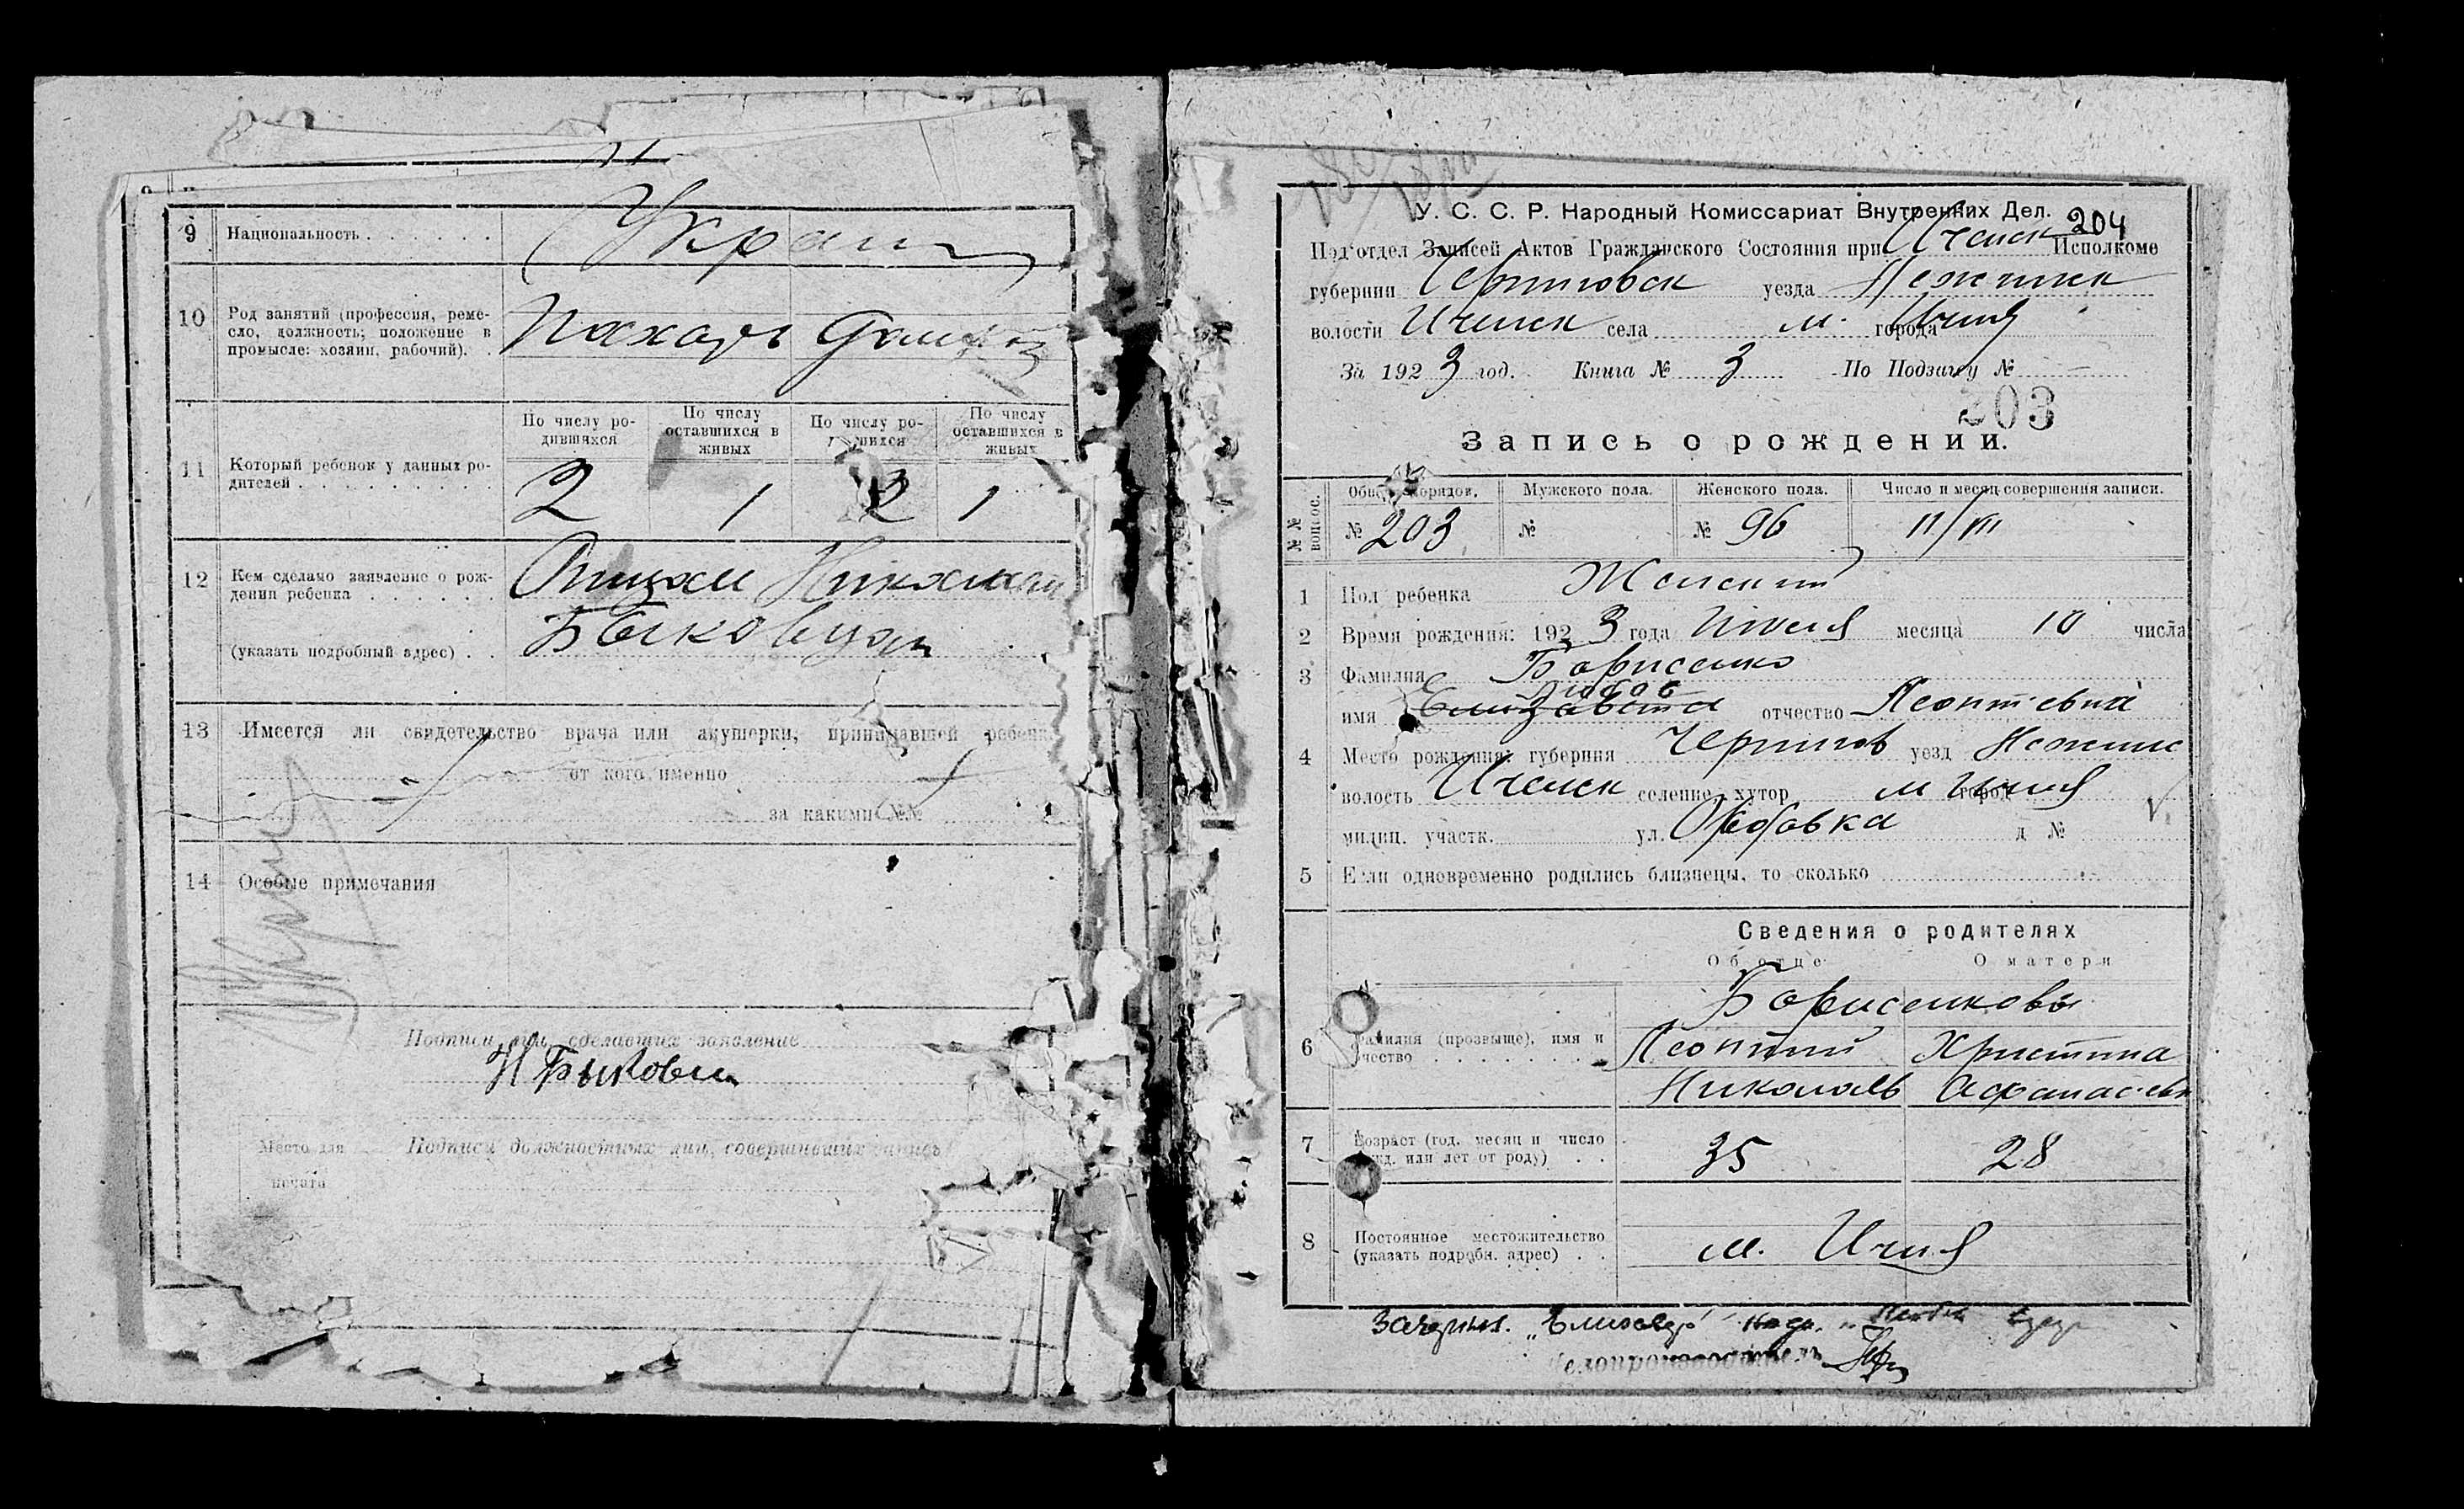 9 Национальность . . . . . . Украин
10 Род занятий (профессия, реме-
сло, должность; положение в
промысле: хозяин, рабочий). . Пахарь
11 Который ребенок у данных ро-
дителей . . . . . . . . .
По числу ро-
дившихся
По числу
оставшихся в
живых
По числу ро-
шихся
По числу
оставшихся в
живых
2 1 2 1
12 Кем сделано заявление о рож-
дении ребенка . . . . . .
(указать подробный адрес) . .
13 Имеется ли свидетельство врача или акушерки, принимавшей ребенка
от кого именно
за какими №№
14 Особые примечания
Подписи лиц, сделавших заявление
Н Быковец
Место для
печати
Подписи должностных лиц, совершивших запись
204
У. С. С. Р. Народный Комиссариат Внутренних Дел.
Под'отдел Записей Актов Гражданского Состояния при Иченск Исполкоме
губернии Черниговск уезда Нежинск
волости Иченск села м. города Ичня
За 192 3 год. Книга № 3 По Подзагсу № —
203
Запись о рождении.
№№ вопрос.
Общ. порядов. Мужского пола. Женского пола. Число и месяц совершения записи.
№ 203 № № 96 11/VII
1 Пол ребенка Женский
2 Время рождения: 192 3 года Июля месяца 10 числа
3 Фамилия Борисенко
Любов
имя Елизавета отчество Леонтевна
4 Место рождения: губерния Чернигов уезд Нежинс
волость Иченск селение, хутор м Ичня город
милиц. участк. ул. д №
5 Если одновременно родились близнецы, то сколько
Сведения о родителях
Об отце О матери
6 Фамилия (прозвище), имя и
отчество . . . . . . . .
Борисенковы
Леонтий Христина
Николаев Афанасьевн
7 Возраст (год, месяц и число
рожд. или лет от роду) . . 35 28
8 Постоянное местожительство
(указать подробн. адрес) . . м. Ичня
Делопроизводитель